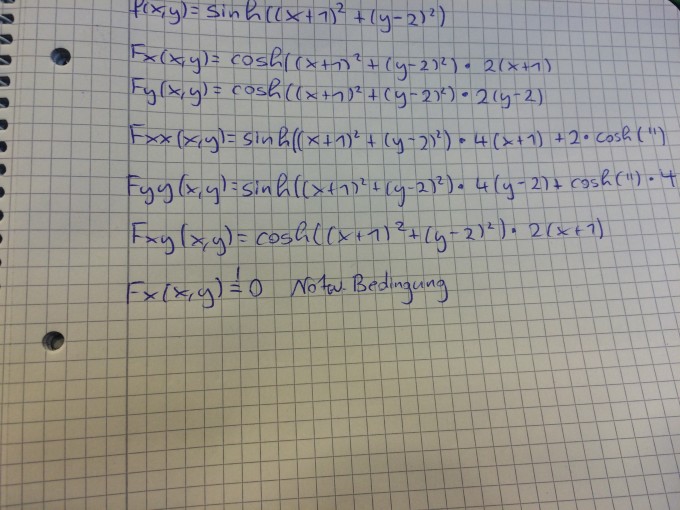 f(x,y)=sinh((x+1)² +(y-2)²)
Fx(x,y)= cosh((x+1)²+(y-2)²)· 2(x+1)
Fy(x,y)= cosh((x+1)²+(y-2)²)·2(y-2)
Fxx(x,y)=sinh((x+1)²+(y-2)²)· 4(x+1) +2·cosh(")
Fyy(x,y)=sinh((x+1)²+(y-2)²)· 4(y-2)+ cosh(")·4
Fxy(x,y)= cosh((x+1)²+(y-2)²)· 2(x+1)
Fx(x,y) ≟ 0 Notw. Bedingung